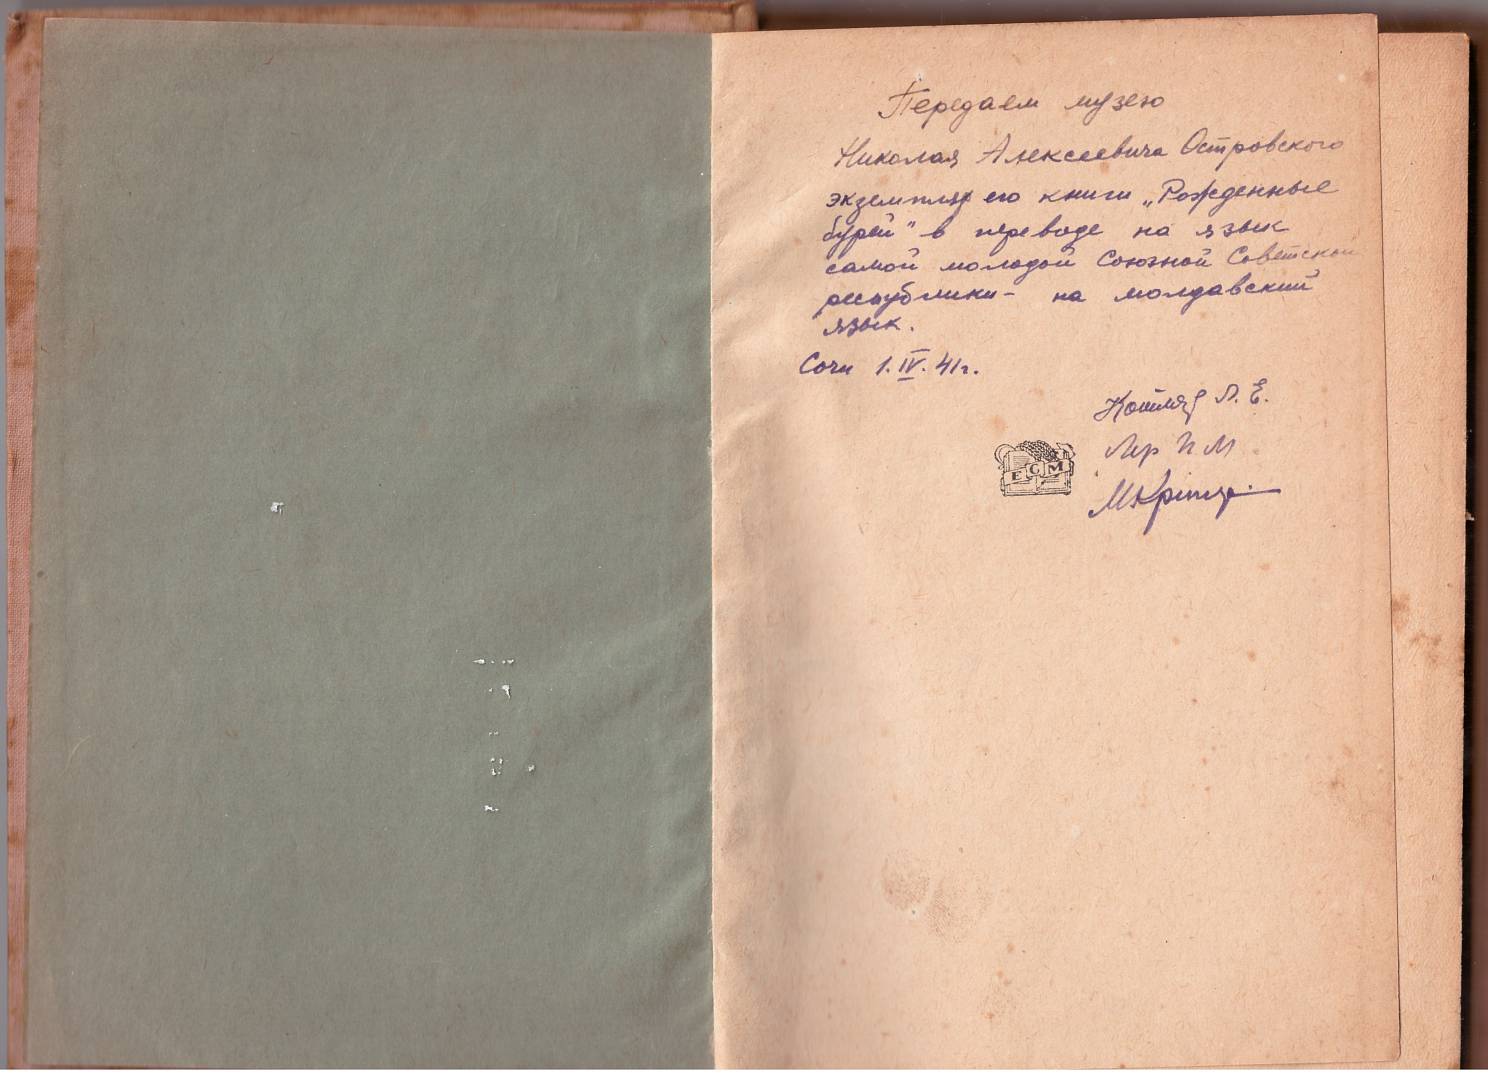 Передаем музею
Николая Алексеевича Островского
экземпляр его книги „Рожденные
бурей" в переводе на язык
самой молодой Союзной Советской
республики - на молдавский
язык.
Сочи 1.IV.41г.
Л. Е.
ЕСМ